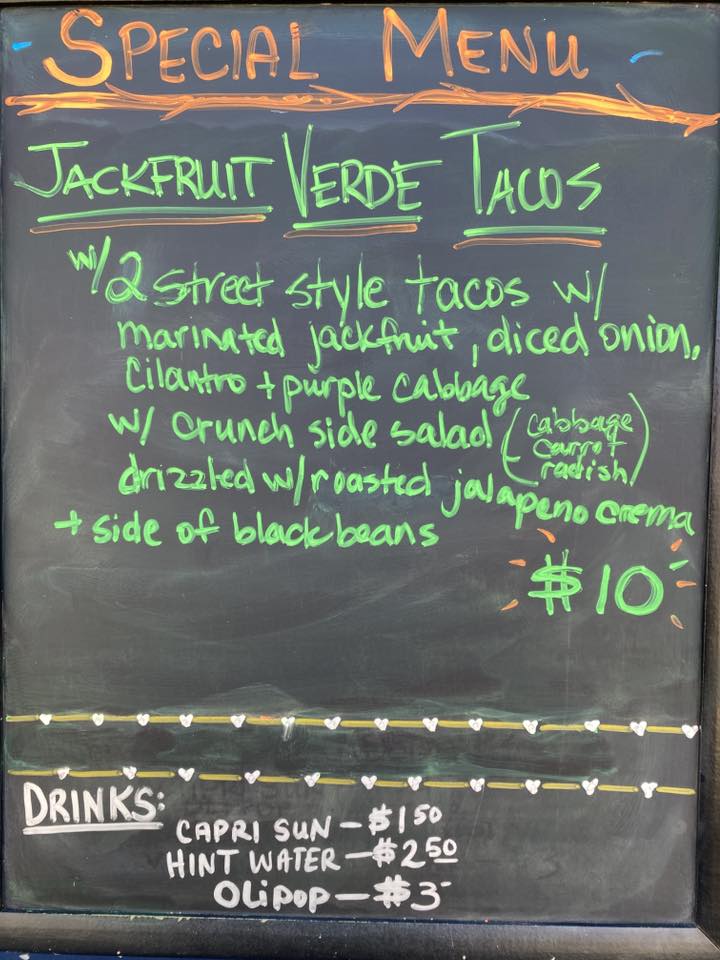 SPECIAL MENU
JACKFRUIT VERDE TACOS
w/ 2 street style tacos w/
marinated jackfruit, diced onion,
cilantro + purple cabbage
w/ crunch side salad (cabbage
carrot
radish)
drizzled w/ roasted jalapeno crema
+ side of black beans
$10
DRINKS:
CAPRI SUN - $1 50
HINT WATER - $2 50
Olipop - $3 -